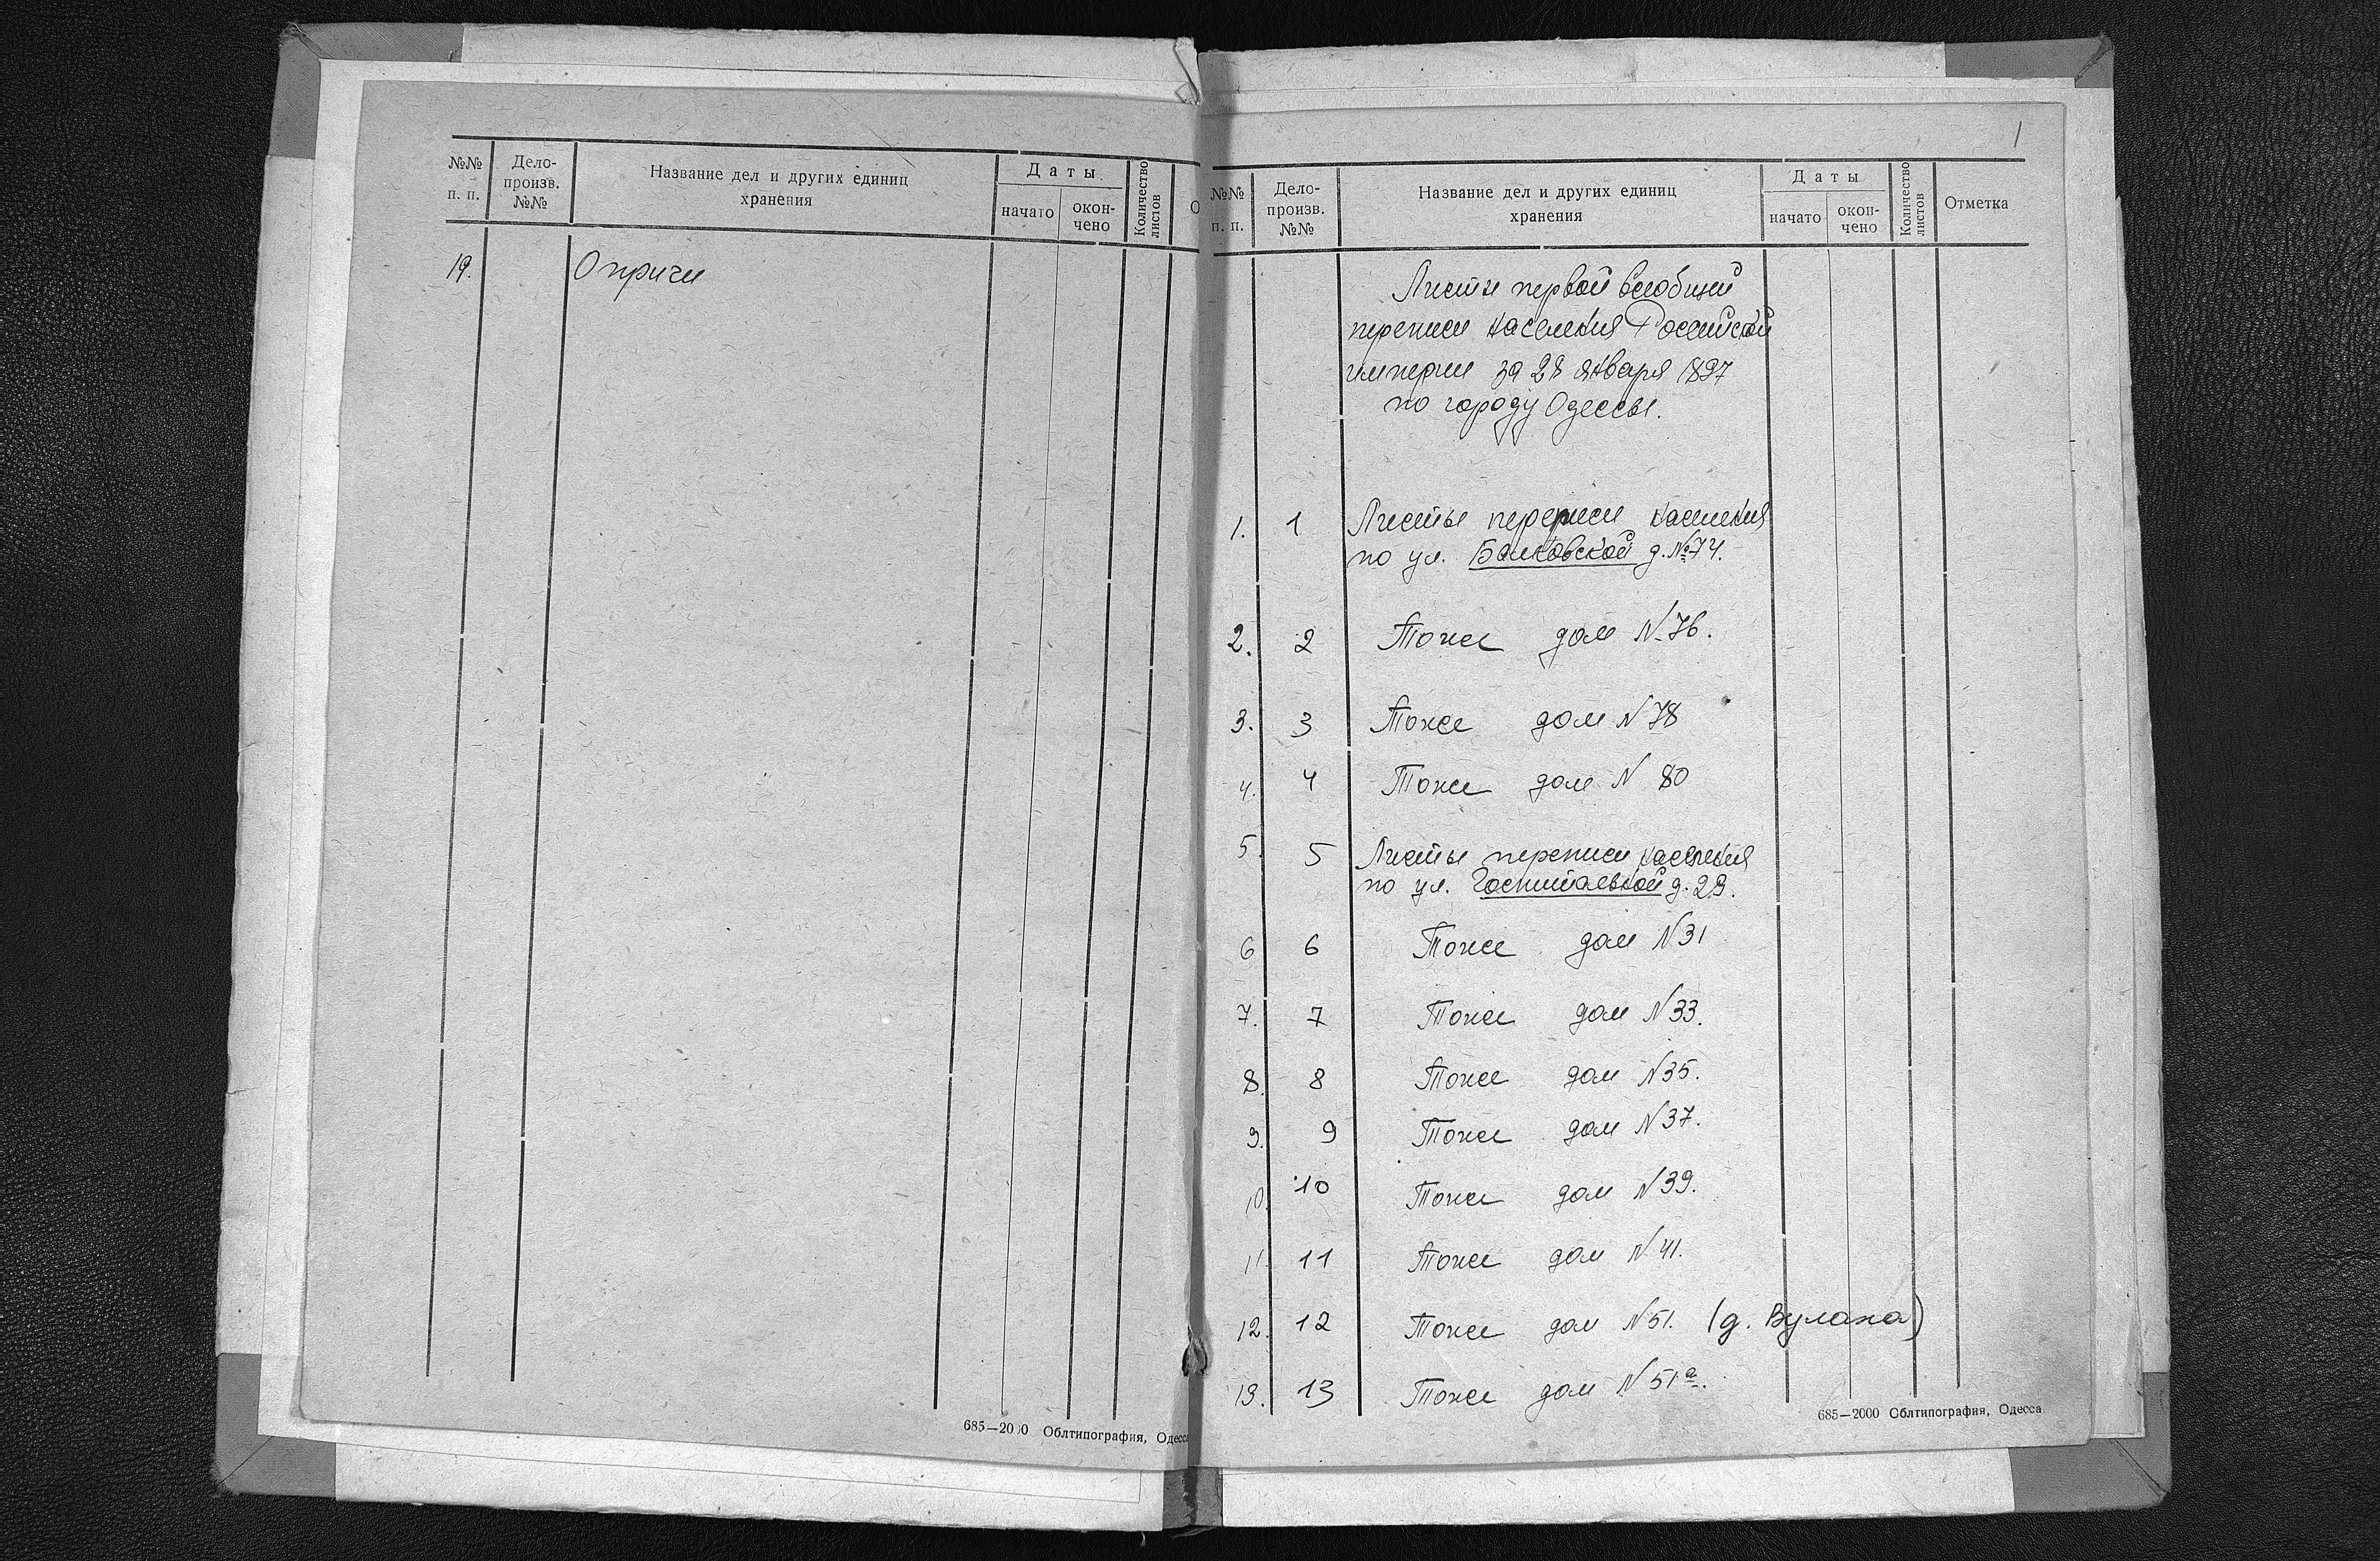 №№ п. п.
Дело-
произв.
№№
Название дел и других единиц
хранения
Даты
начато
окон-
чено
Количество
листов
О
19. Опричи
685—2000 Облтипография, Одесса
1
№№ п. п.
Дело-
произв.
№№
Название дел и других единиц
хранения
Даты
начато
окон-
чено
Количество
листов
Отметка
Листы первой всеобщей
переписи населения Российской
империи за 28 января 1897
по городу Одессы.
1. 1 Листы переписи населения
по ул. Балковской д. №74.
2. 2 Тоже дом №76.
3. 3 Тоже дом N 78
4. 4 Тоже дом N 80
5. 5 Листы переписи населения
по ул. Госпитальной д. 29.
6 6 Тоже дом N 31
7. 7 Тоже дом N 33.
8. 8 Тоже дом N 35.
9. 9 Тоже дом N 37.
10. 10 Тоже дом N 39.
11. 11 Тоже дом N 41.
12. 12 Тоже дом N 51. (д. Вулаха)
13. 13 Тоже дом N 51а.
685—2000 Облтипография, Одесса